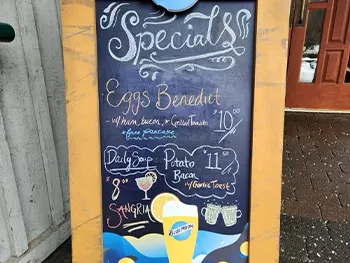 Specials
Eggs Benedict
- w/ Ham, bacon, + Grilled Toasts
+ free pancake
$10.00
Daily Soup
$8.00
Potato Bacon
$11.50
w/ Garlic Toast
SANGRIA
BLUE MOON